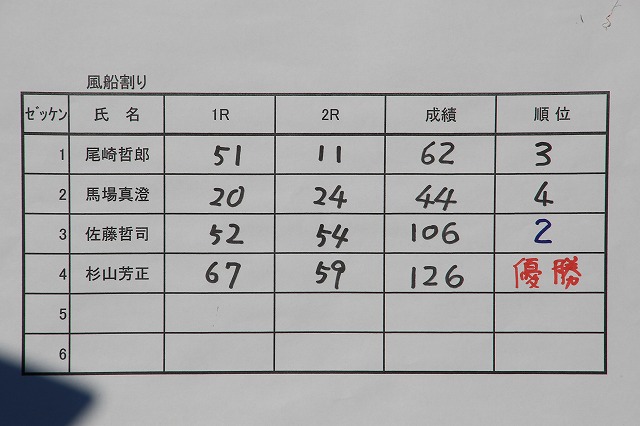 風船割り
ｾﾞｯｹﾝ 氏 名 1R 2R 成績 順 位
1 尾崎哲郎 51 11 62 3
2 馬場真澄 20 24 44 4
3 佐藤哲司 52 54 106 2
4 杉山芳正 67 59 126 優勝
5
6